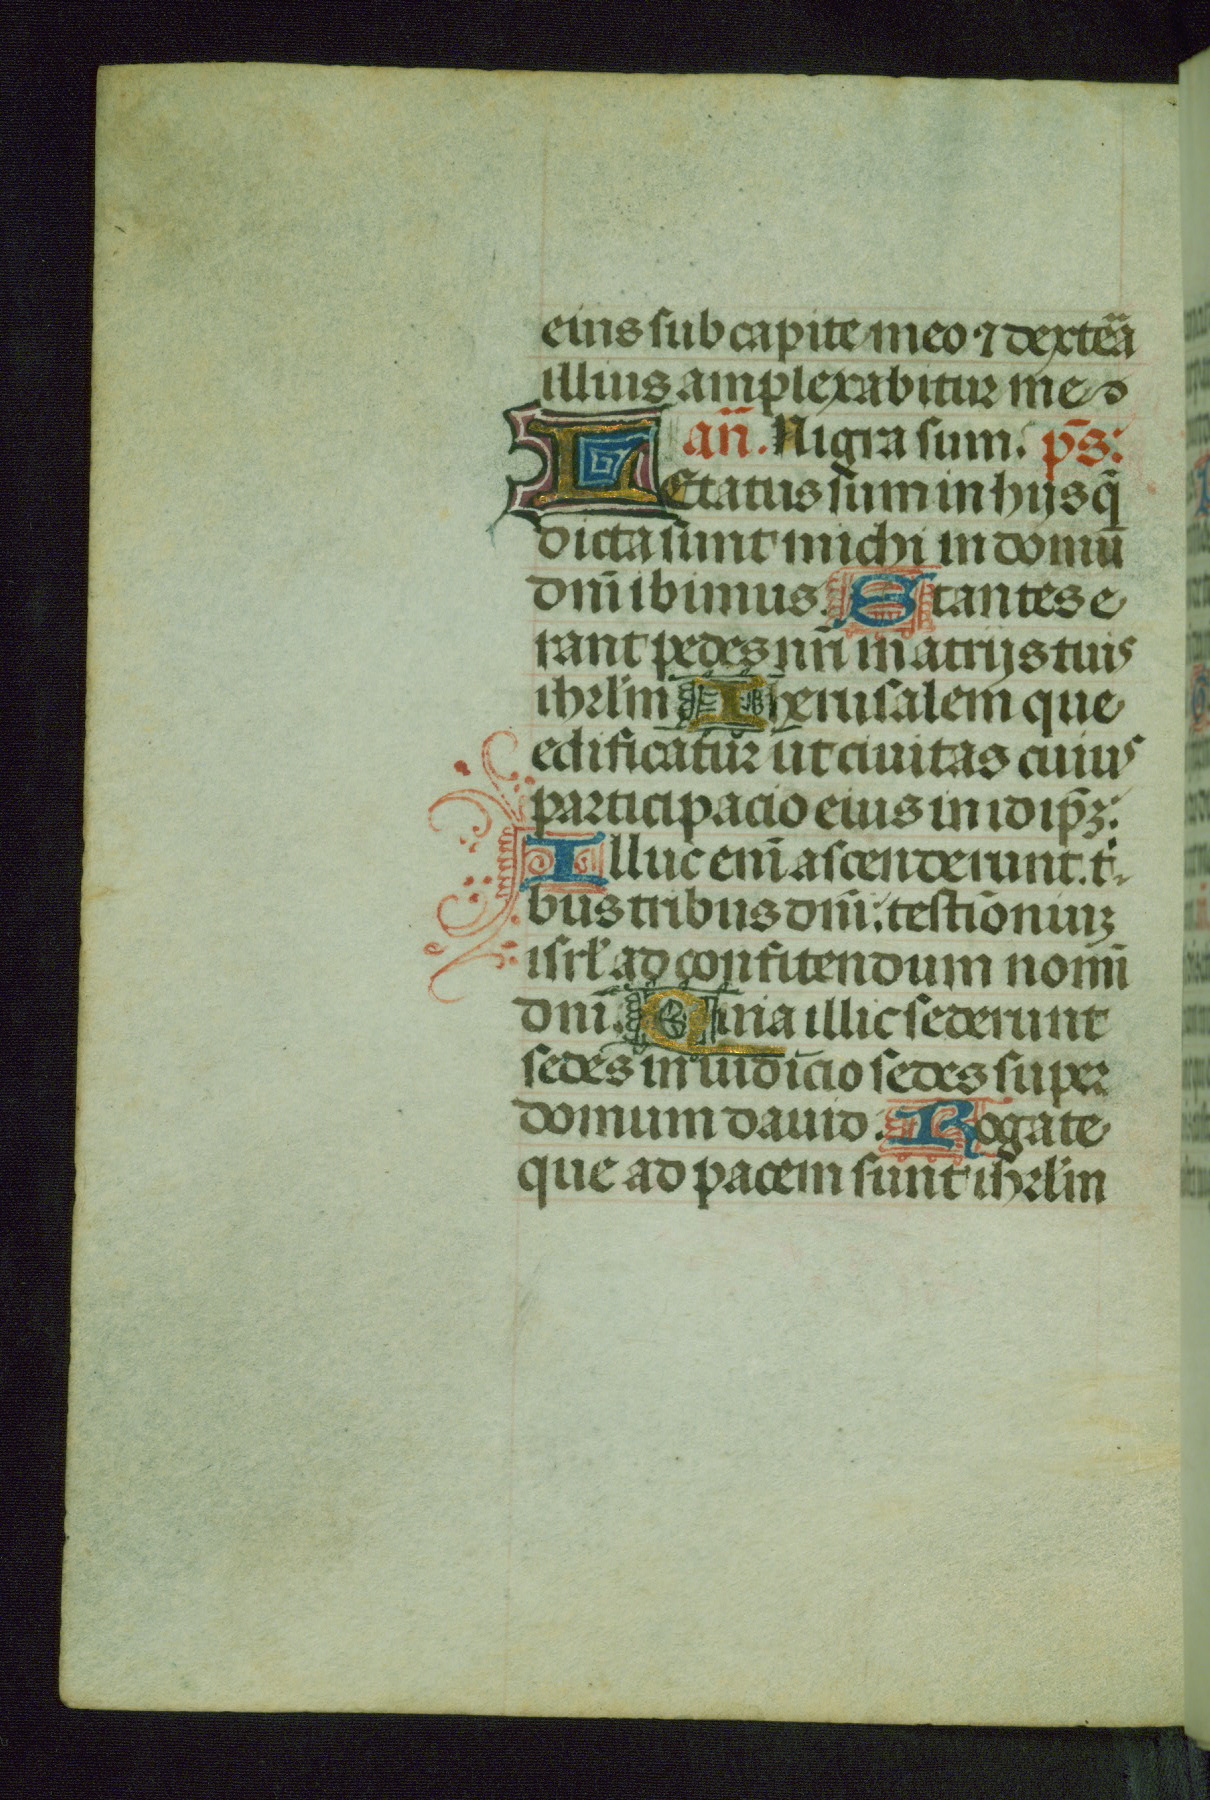 eius sub capite meo ⁊ dexteã
illius amplexabitur me
añ. Nigra sum. p̄s:
LEtatus sum in hijs q̄
dicta sunt michi in domū
dn̄i ibimus. Stantes e
rant pedes nr̄i in atrijs tuis
ihrl̄m Iherusalem que
edificatur ut ciuitas cuius
participacio eius in idip̄ꝫ:
Illuc eni᷑ ascenderunt. t'
bus tribus dn̄i: testīoniuꝫ
isrl̄ ad confitendum nomī
dn̄i. Quia illic sederunt
sedes in iudicio sedes super
domum dauid. Rogate
que ad pacem sunt ihrl̄m